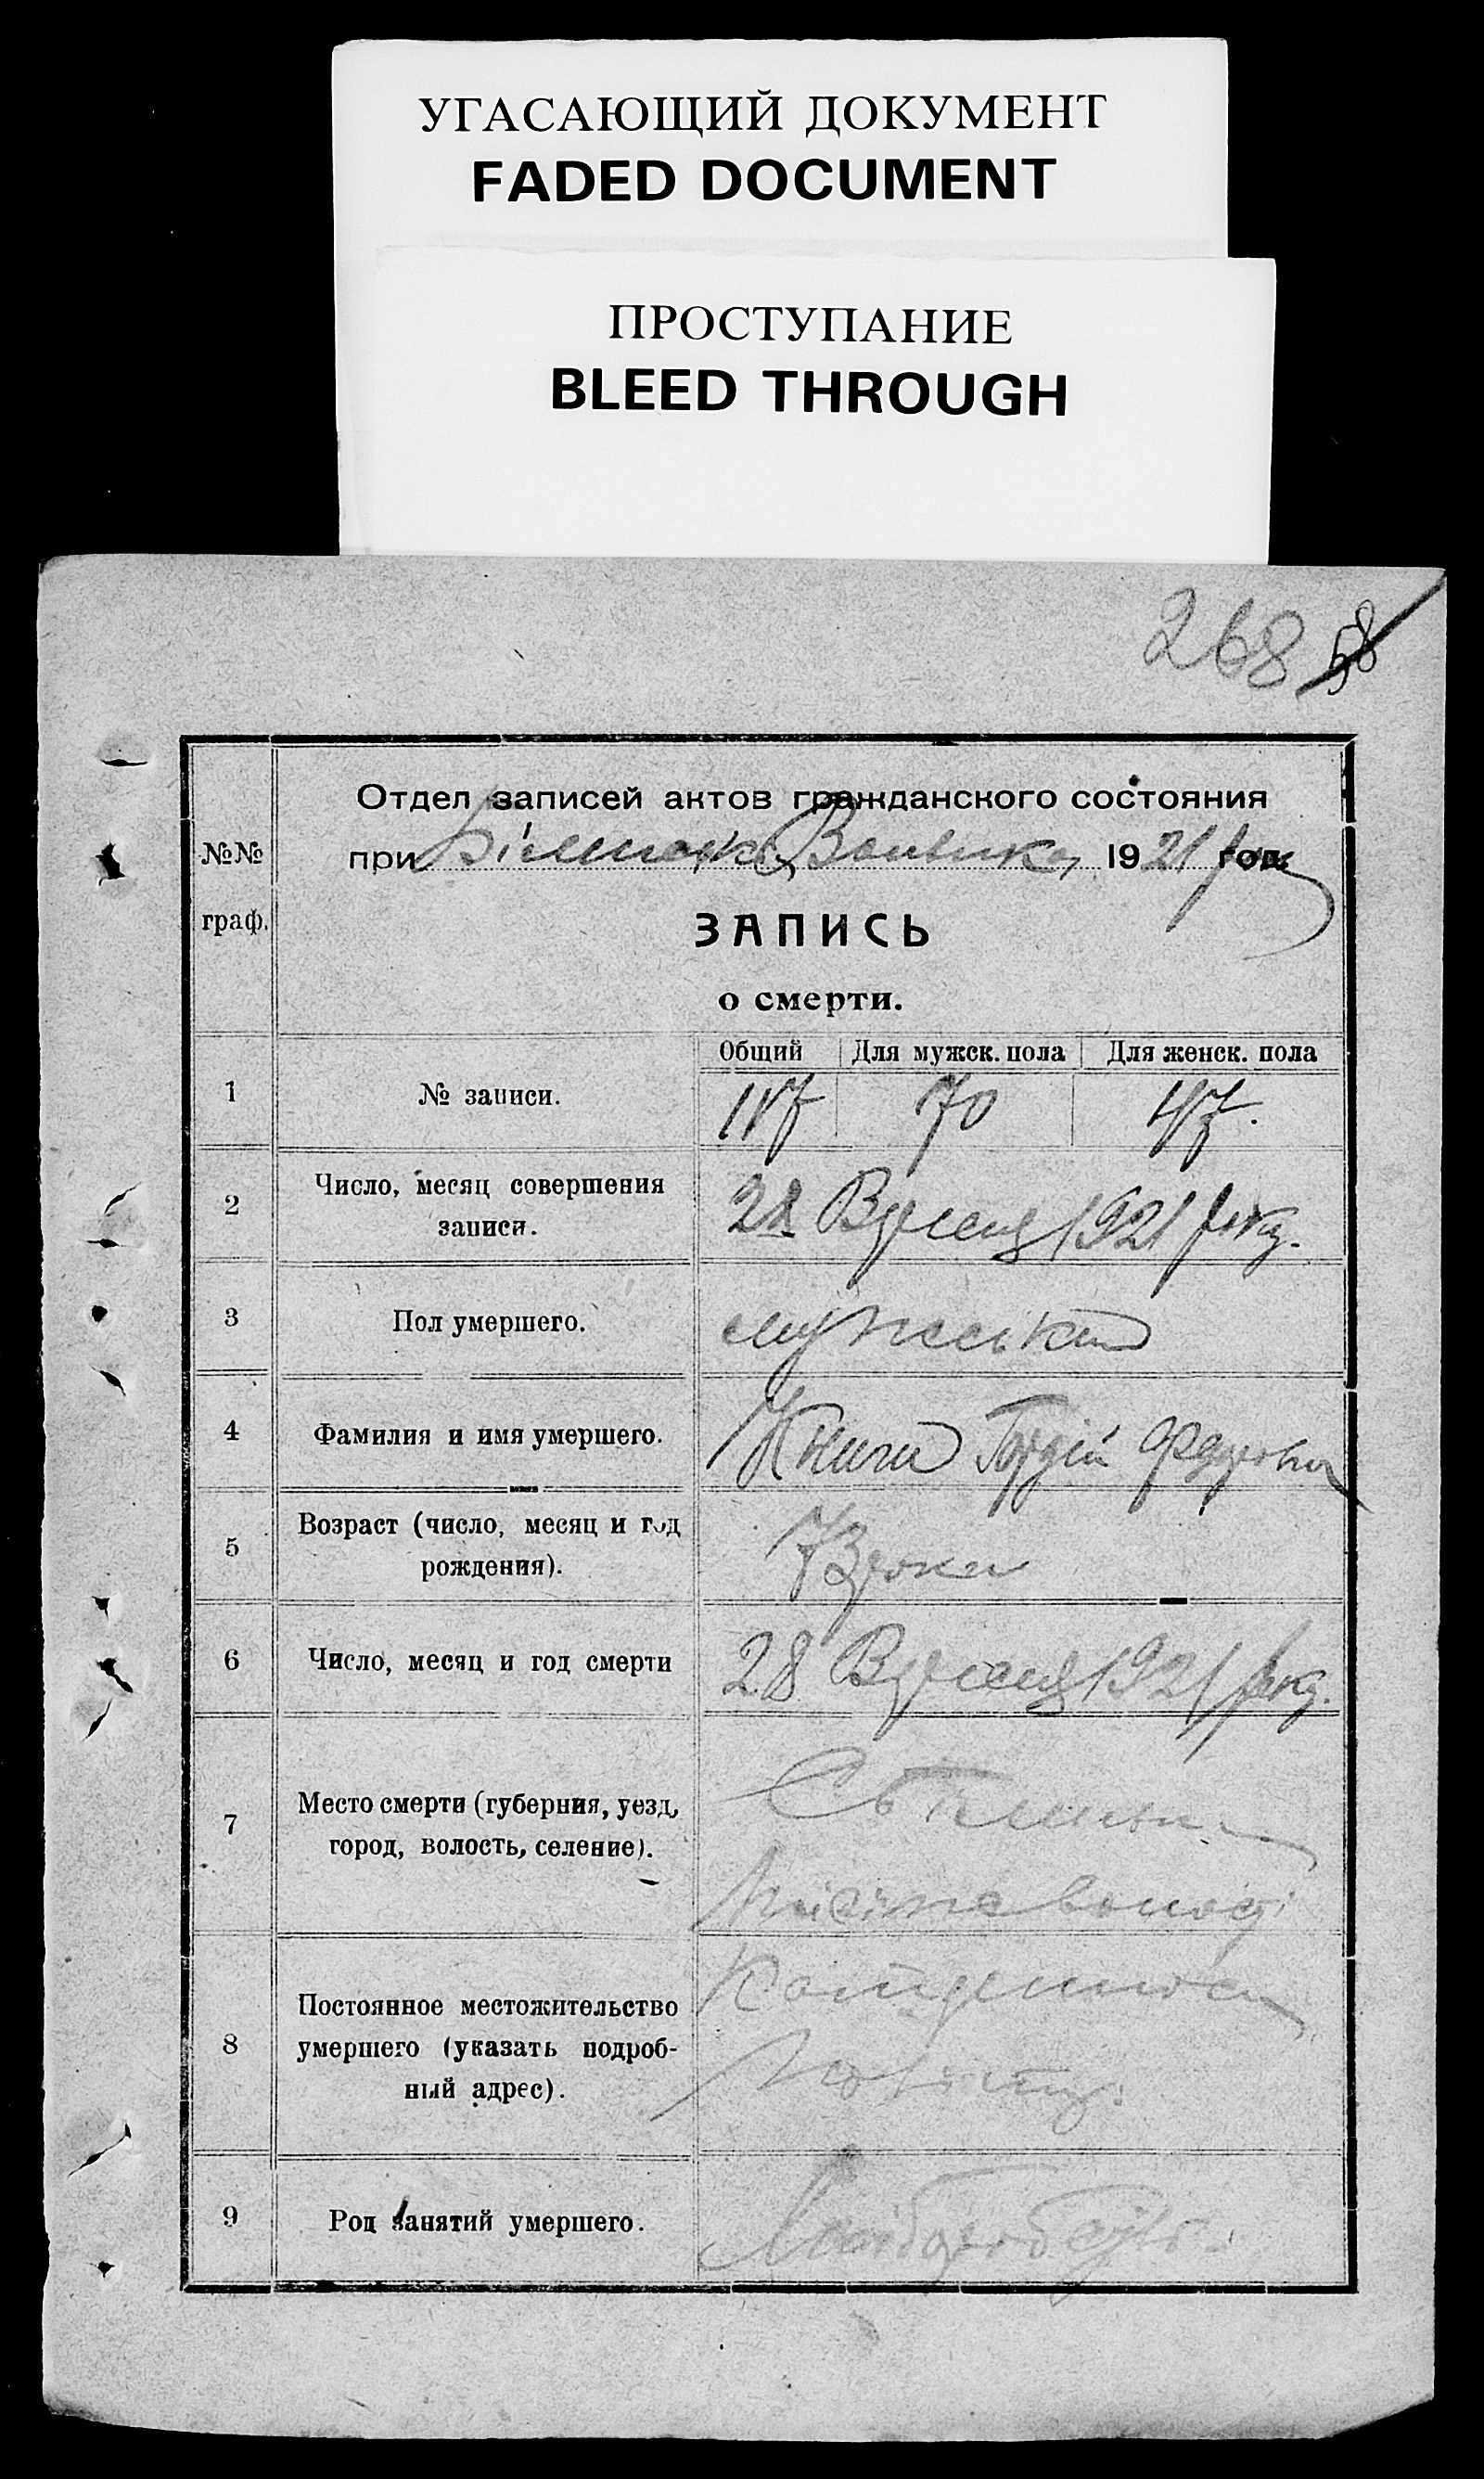 УГАСАЮЩИЙ ДОКУМЕНТ
FADED DOCUMENT
ПРОСТУПАНИЕ
BLEED THROUGH
268 58
№№ граф.
Отдел записей актов гражданского состояния
при 1921 год
ЗАПИСЬ
о смерти.
Общий Для мужск. пола Для женск. пола
1 № записи. 117 70 47.
2 Число, месяц совершения
записи.
28 1921 року.
3 Пол умершего. мужеський
4 Фамилия и имя умершего. Книги Гордій Федорович
5 Возраст (число, месяц и год
рождения).
73 роки
6 Число, месяц и год смерти 28 1921 року.
7 Место смерти (губерния, уезд,
город, волость, селение).
8 Постоянное местожительство
умершего (указать подроб-
ный адрес).
9 Род занятий умершего. Хлібороб